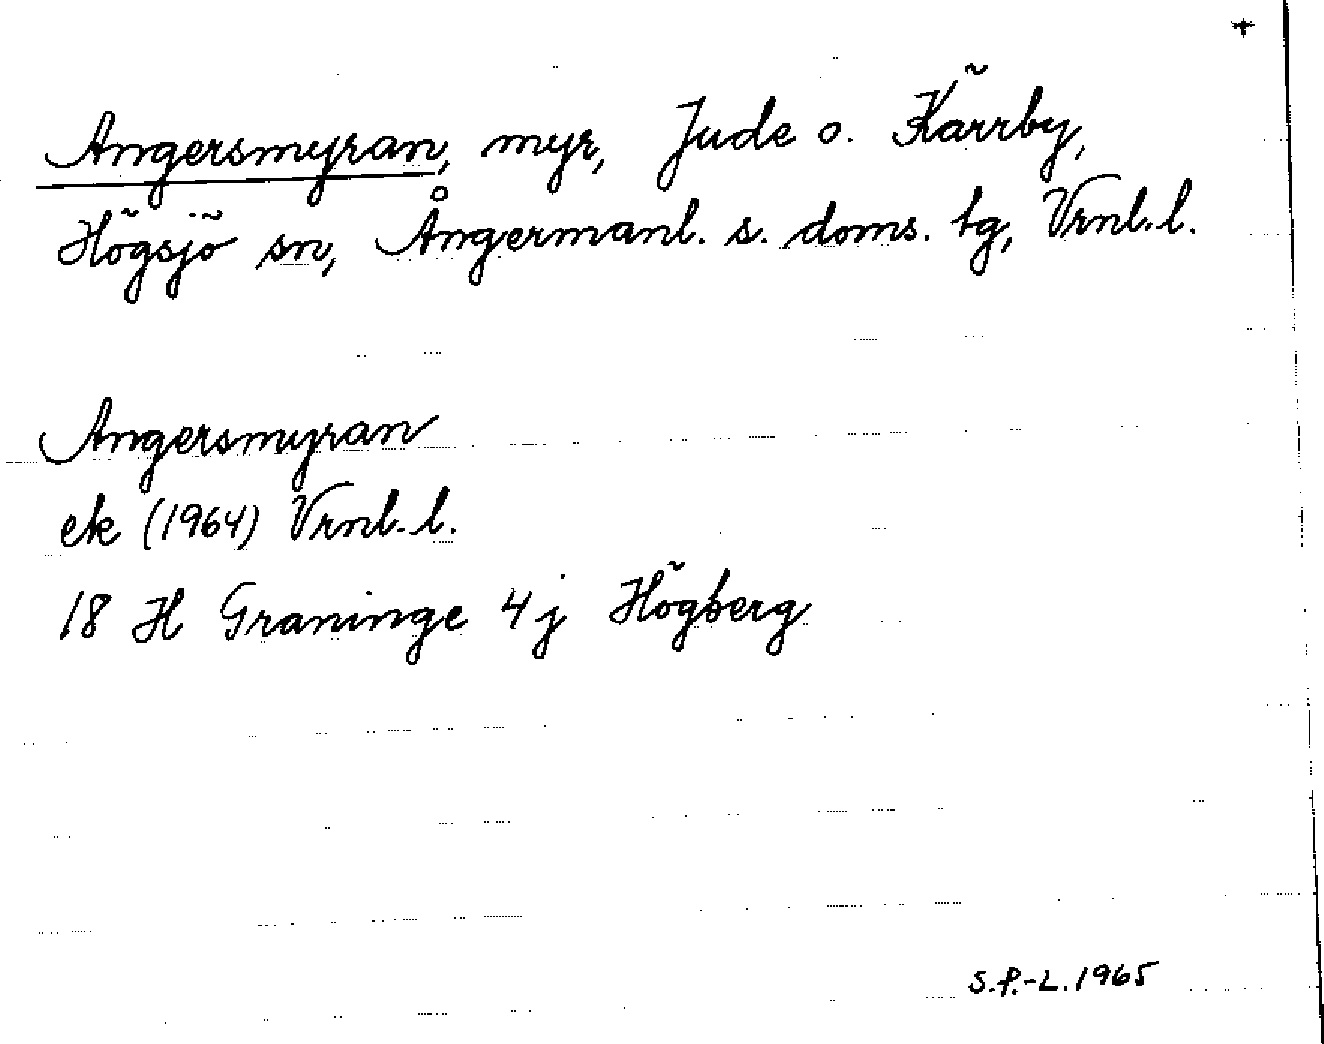 Angersmyran, myr, Jude o. Kärrby,
Högsjö sn, Ångermanl. s. doms. tg, Vrnl. l.
Angersmyran
ek (1964) Vrnl. l.
18 H Graninge 4 j Högberg
S.P.-L. 1965